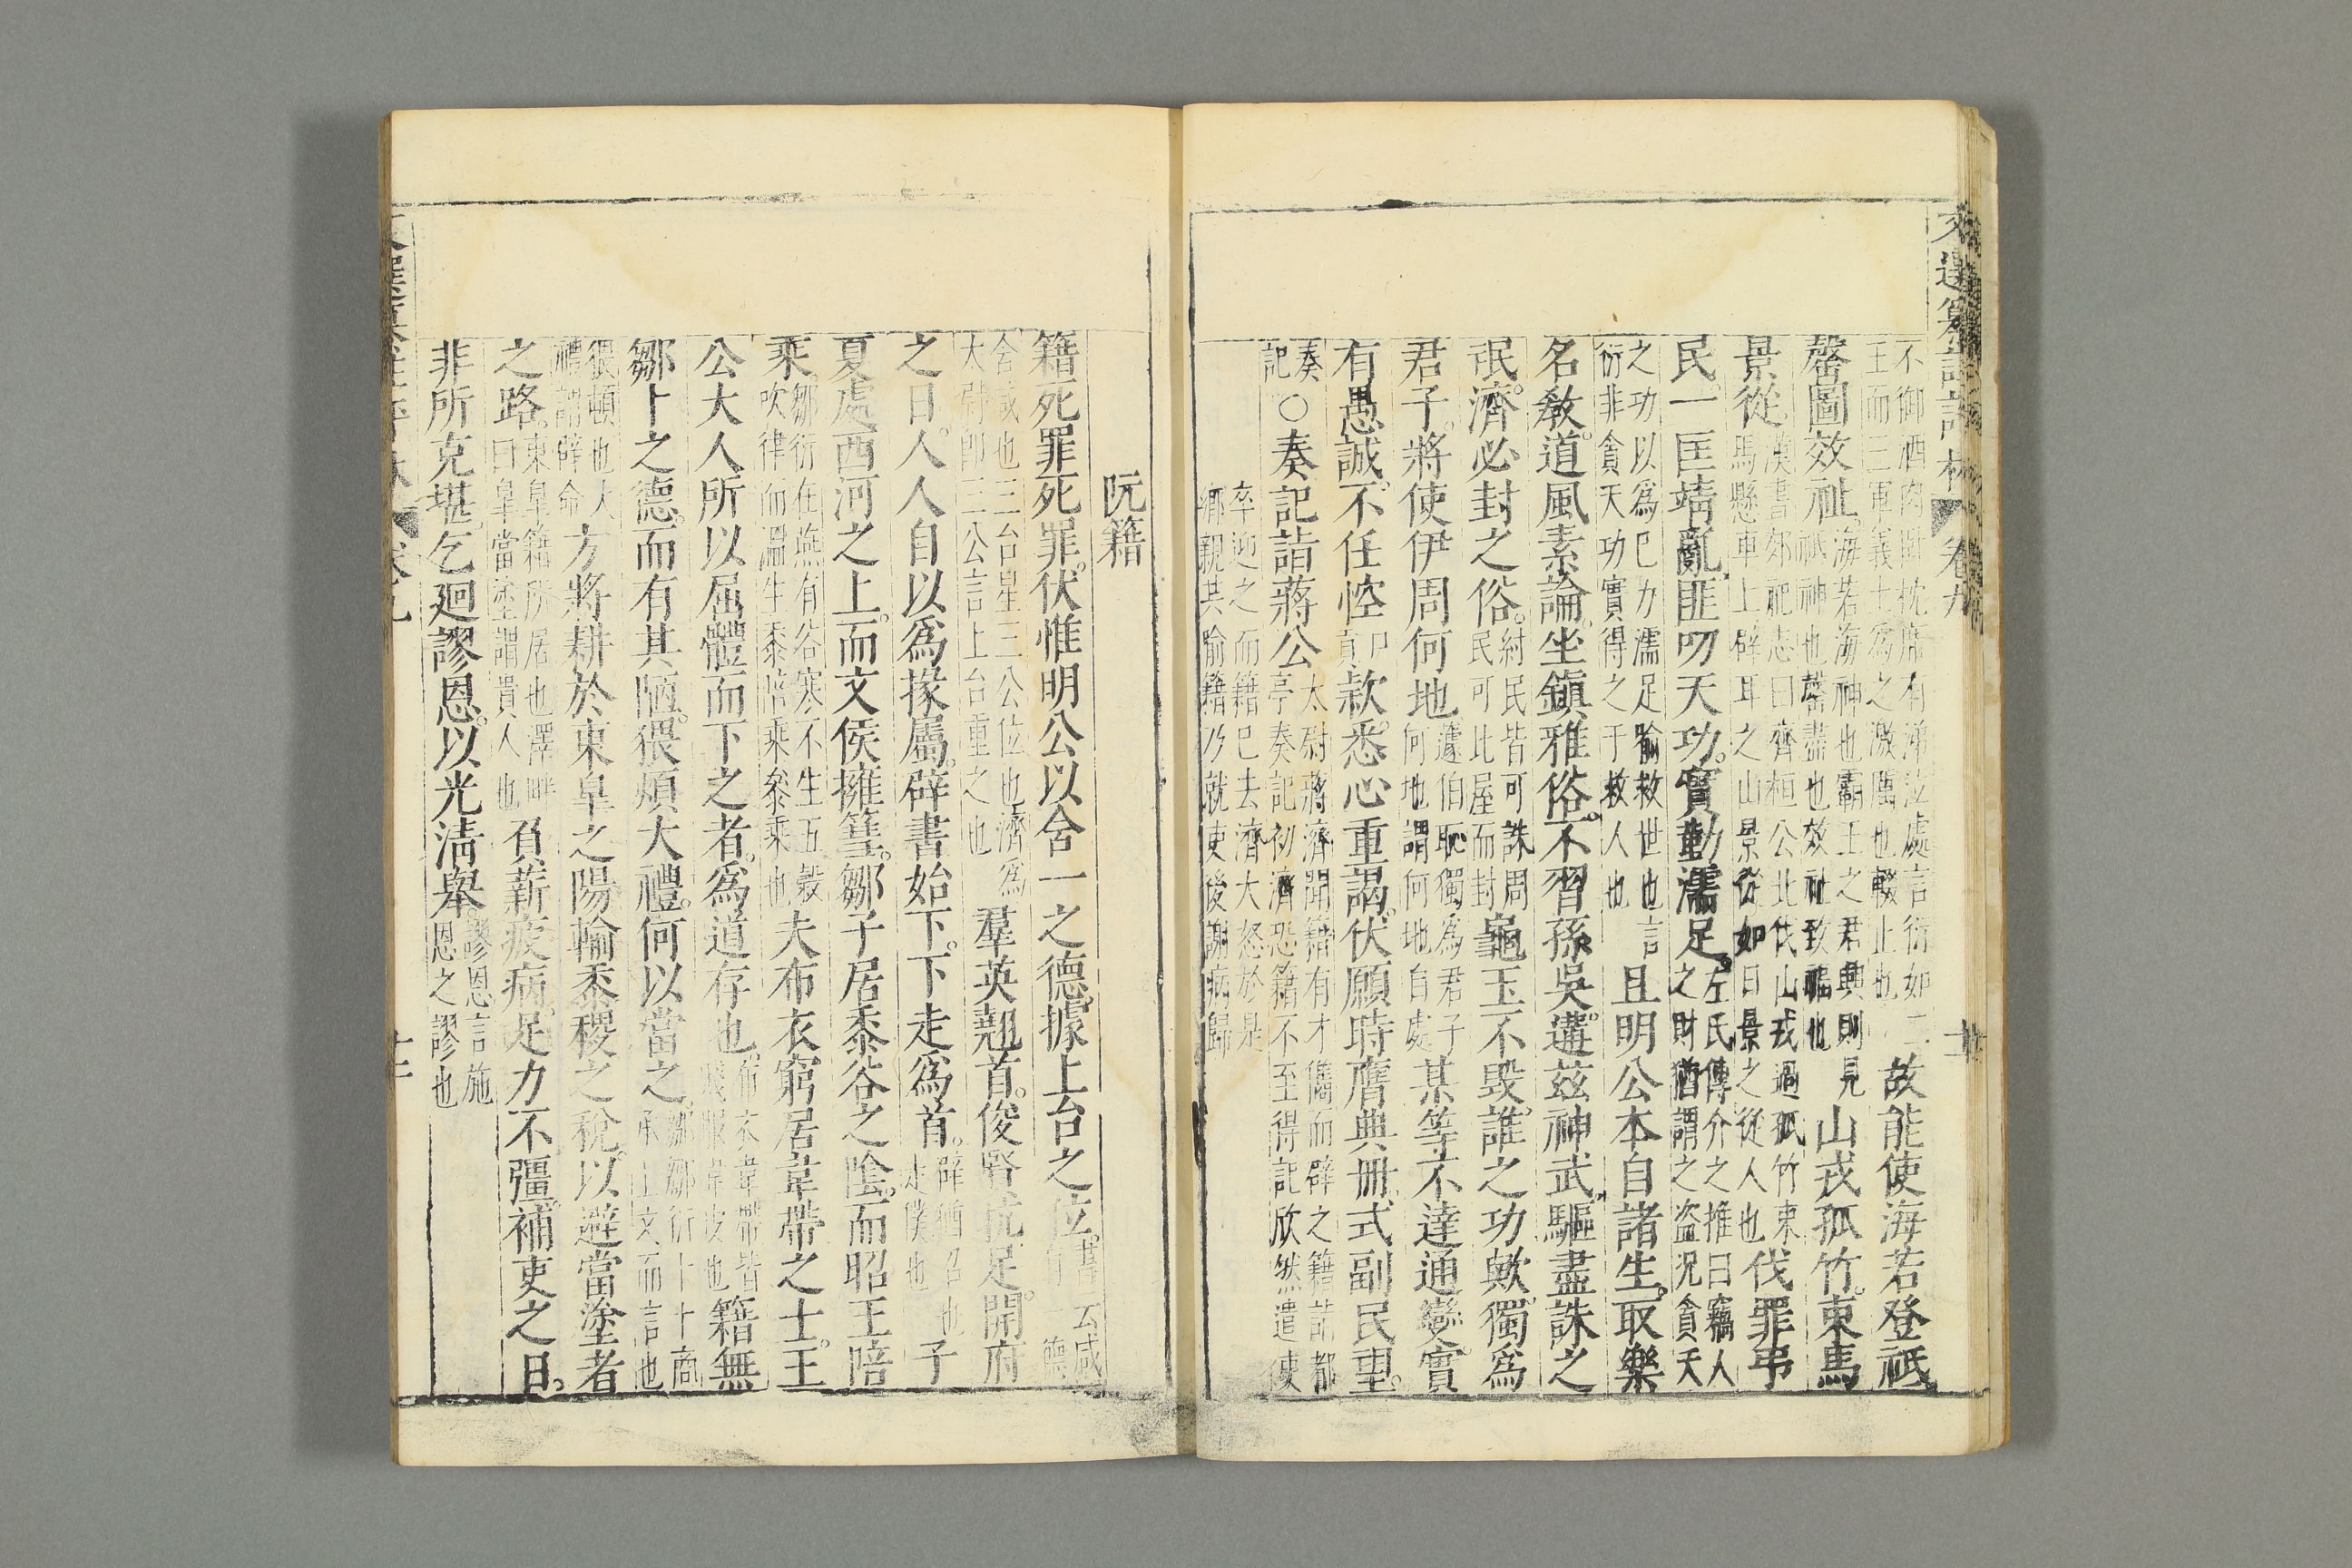 文選纂註評林 卷九
不御酒肉臥枕席有涕泣處言衍如二
王而三軍義士爲之激厲也輟止也 故能使海若登祇
罄圖效祉海若海神也霸王之君興則見
祇神也罄盡也效祉致福也 山戎孤竹東馬
景從漢書郊祀志曰齊桓公北伐山戎過孤竹束
馬懸車上辟耳之山景從如日景之從人也 伐罪弔
民一匡靖亂匪叨天功實勤濡足左氏傳介之推曰竊人
之財猶謂之盜況貪天
之功以爲己力濡足踰救世也言
衍非貪天功實得之于救人也 且明公本自諸生取樂
名敎道風素論坐鎭雅俗不習孫吳遘茲神武驅盡誅之
氓濟必封之俗紂民皆可誅周
民可比屋而封 龜玉不毀誰之功歟獨爲
君子將使伊周何地蘧伯恥獨爲君子
何地謂何地自處 某等不達通變實
有愚誠不任悾款悉心重謁伏願時膺典冊式副民望
奏
記○奏記詣蔣公太尉蔣濟聞籍有才儁而辟之籍詣都
亭奏記初濟恐籍不至得記欣然遣使
卒迎之而籍已去濟大怒於是
鄉親共喻籍乃就吏後謝病歸
阮籍
籍死罪死罪伏惟明公以含一之德據上台之位書云咸
有一德
含咸也三台星三公位也濟爲
太尉卽三公言上台重之也 羣英翹首俊賢抗足開府
之日人人自以爲掾屬辟書始下下走爲首辟猶召也
走僕也 子
夏處西河之上而文侯擁篲鄒子居黍谷之陰而昭王陪
乘鄒衍在燕有谷寒不生五穀
吹律而溫生黍陪乘參乘也 夫布衣窮居韋帶之士王
公大人所以屈體而下之者爲道存也布衣韋帶皆
賤服韋皮也 籍無
鄒卜之德而有其陋猥煩大禮何以當之鄒鄒衍卜卜商
承上文而言也
猥頓也大
禮謂辟命 方將耕於東皐之陽輸黍稷之稅以避當塗者
之路東皐籍所居也澤畔
曰皐當塗謂貴人也 負薪疲病足力不彊補吏之日
非所克堪乞廻謬恩以光淸舉謬恩言施
恩之謬也